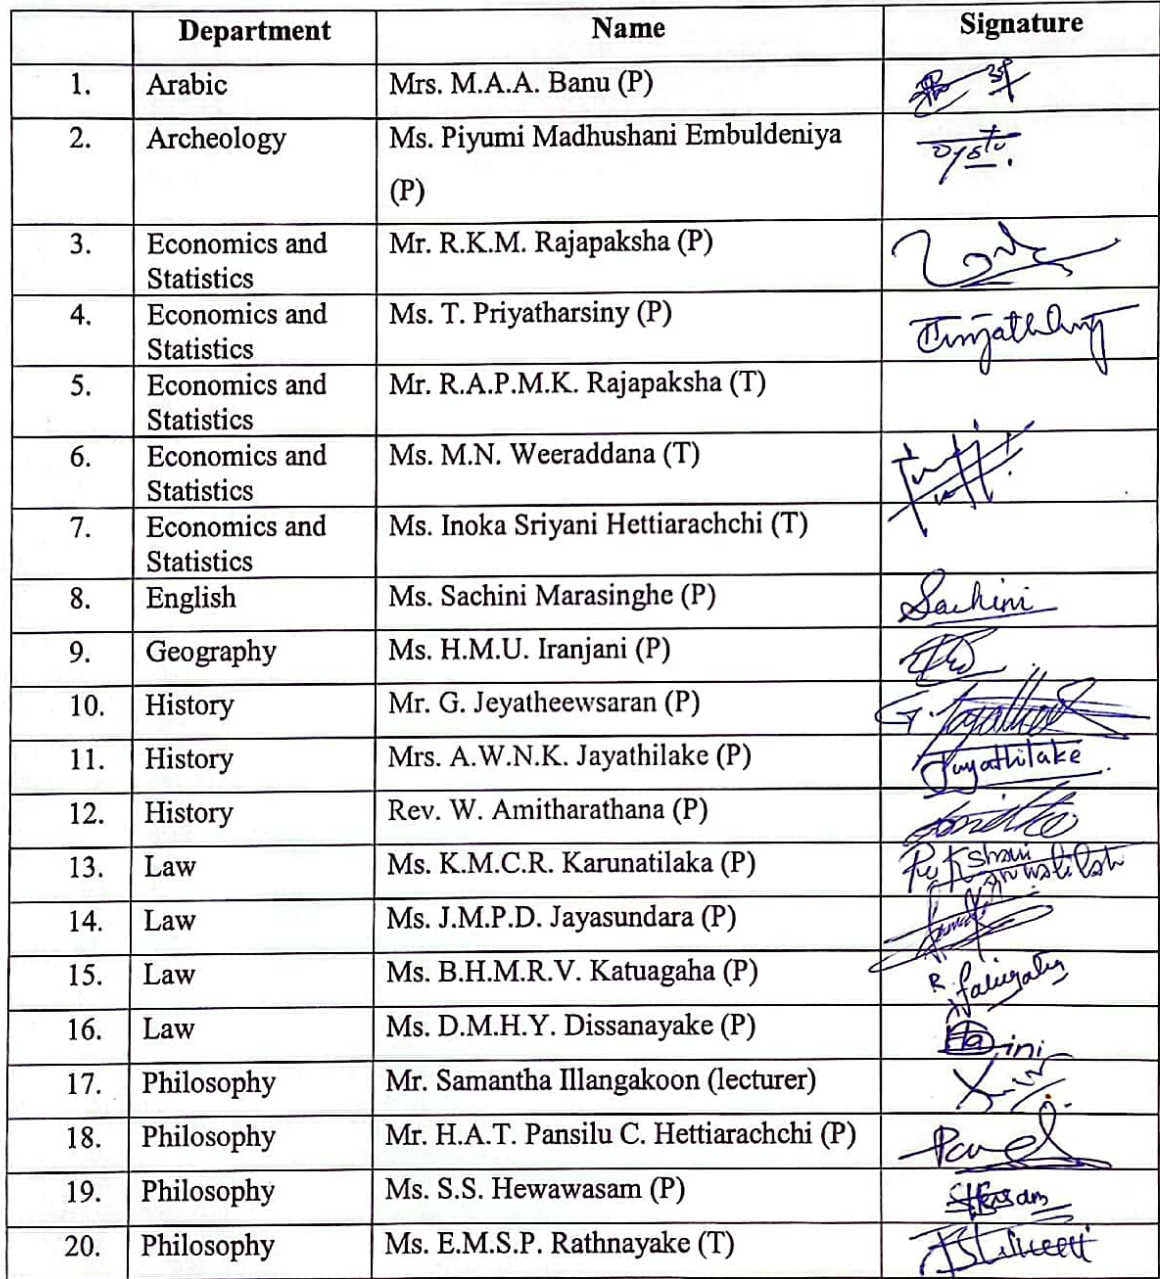 Department Name Signature
1. Arabic Mrs. M.A.A. Banu (P)
2. Archeology Ms. Piyumi Madhushani Embuldeniya
(P)
3. Economics and Mr. R.K.M. Rajapaksha (P)
Statistics
4. Economics and Ms. T. Priyatharsiny (P)
Statistics
5. Economics and Mr. R.A.P.M.K. Rajapaksha (T)
Statistics
6. Economics and Ms. M.N. Weeraddana (T)
Statistics
7. Economics and Ms. Inoka Sriyani Hettiarachchi (T)
Statistics
8. English Ms. Sachini Marasinghe (P) Sachini
9. Geography Ms. H.M.U. Iranjani (P)
10. History Mr. G. Jeyatheewsaran (P)
11. History Mrs. A.W.N.K. Jayathilake (P) Jayathilake
12. History Rev. W. Amitharathana (P)
13. Law Ms. K.M.C.R. Karunatilaka (P)
14. Law Ms. J.M.P.D. Jayasundara (P)
15. Law Ms. B.H.M.R.V. Katuagaha (P)
16. Law Ms. D.M.H.Y. Dissanayake (P)
17. Philosophy Mr. Samantha Illangakoon (lecturer)
18. Philosophy Mr. H.A.T. Pansilu C. Hettiarachchi (P)
19. Philosophy Ms. S.S. Hewawasam (P)
20. Philosophy Ms. E.M.S.P. Rathnayake (T)